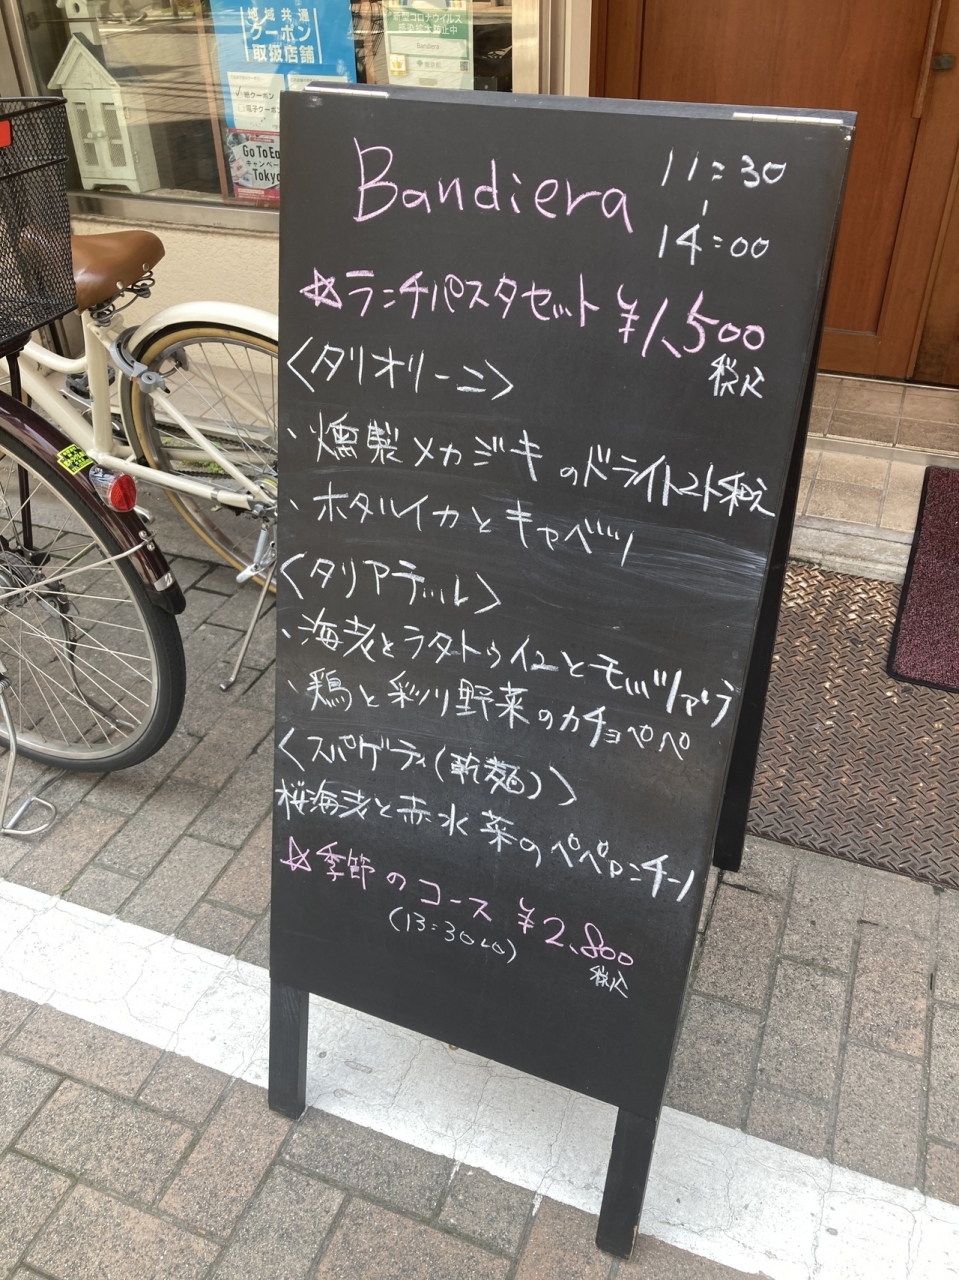 地域共通
クーポン
取扱店舗
紙クーポン
電子クーポン
Go To Ea
キャンペーン
Tokyo
新型コロナウイルス
感染拡大防止中
Bandiera
東京都
Bandiera
11:30
|
14:00
☆ランチパスタセット ¥1,500
税込
〈タリオリーニ〉
、燻製メカジキのドライトマト和え
、ホタルイカとキャベツ
〈タリアテッレ〉
、海老とラタトゥイユとモッツァラ
、鶏と彩り野菜のカチョペペ
〈スパゲティ(乾麺)〉
桜海老と赤水菜のペペロンチーノ
☆季節のコース ¥2,800
(13:30LO)
税込